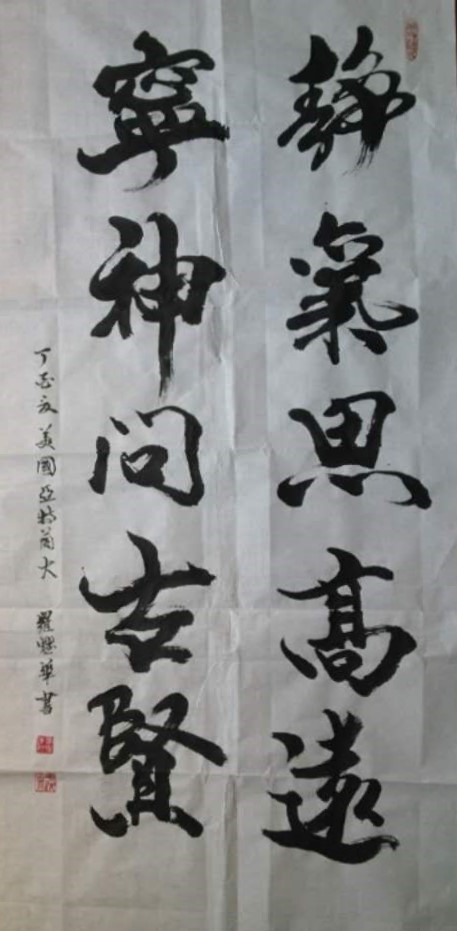 靜氣思高遠
寧神問古賢
丁酉夜美國亞特蘭大 羅 華書